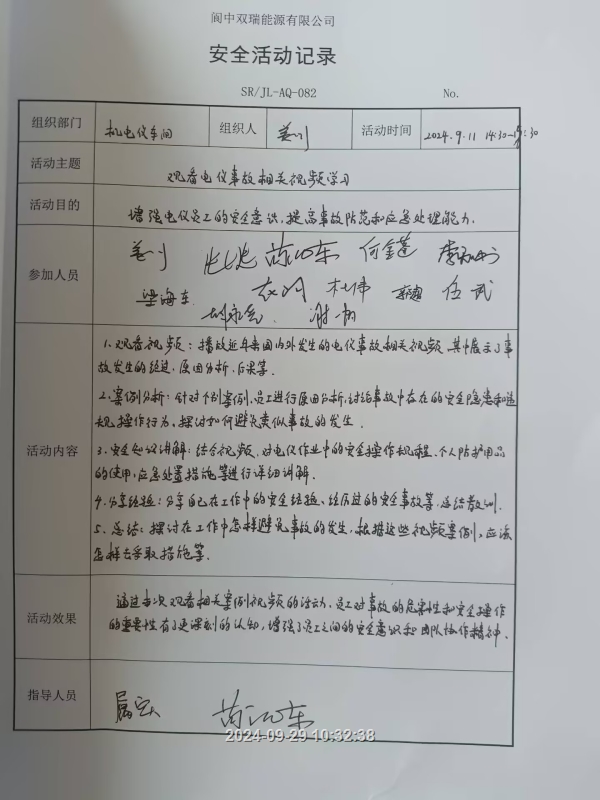 阆中双瑞能源有限公司
安全活动记录
SR/JL-AQ-082 No.
组织部门 机电仪车间 组织人 活动时间 2024.9.11 14:30-15:30
活动主题 观看电仪事故相关视频学习
活动目的 增强电仪员工的安全意识，提高事故防范和应急处理能力.
参加人员
何金蓬
梁海东 杜伟 任武
活动内容
1.观看视频：播放近年来国内外发生的电仪事故相关视频，其中展示了事
故发生的经过，原因分析，后果等.
2.案例分析：针对个别案例，员工进行原因分析，讨论事故中存在的安全隐患和违
规操作行为，探讨如何避免类似事故的发生.
3.安全知识讲解：结合视频，对电仪作业中的安全操作规程、个人防护用品
的使用，应急处置措施等进行详细讲解.
4.分享经验：分享自己在工作中的安全经验、经历过的安全事故等，总结教训.
5.总结：探讨在工作中怎样避免事故的发生，根据这些视频案例，应该
怎样去采取措施等.
活动效果
通过本次观看相关案例视频的活动，员工对事故的危害性和安全操作
的重要性有了更深刻的认知，增强了员工之间的安全意识和团队协作精神.
指导人员
2024-09-29 10:32:38